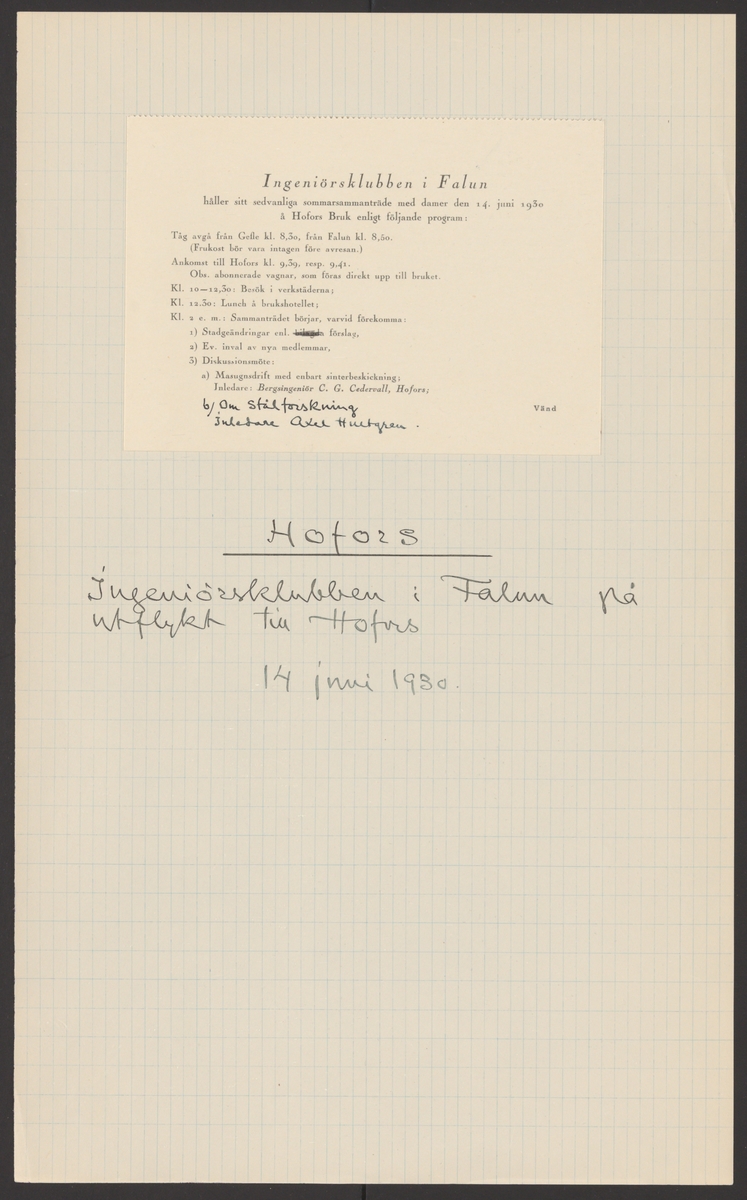 Ingeniörsklubben i Falun
håller sitt sedvanliga sommarsammanträde med damer den 14. juni 1930
å Hofors Bruk enligt följande program:
Tåg avgå från Gefle kl. 8,30, från Falun kl. 8,50.
(Frukost bör vara intagen före avresan.)
Ankomst till Hofors kl. 9,39, resp. 9,41.
Obs. abonnerade vagnar, som föras direkt upp till bruket.
Kl. 10—12,30: Besök i verkstäderna;
Kl. 12.30: Lunch å brukshotellet;
Kl. 2 e. m.: Sammanträdet börjar, varvid förekomma:
1) Stadgeändringar enl. förslag,
2) Ev. inval av nya medlemmar,
3) Diskussionsmöte:
a) Masugnsdrift med enbart sinterbeskickning;
Inledare: Bergsingeniör C. G. Cedervall, Hofors;
b) Om Stålforskning
Vänd
Inledare Axel Hultgren.
Hofors
Ingeniörsklubben i Falun på
utflykt till Hofors
14 juni 1930.